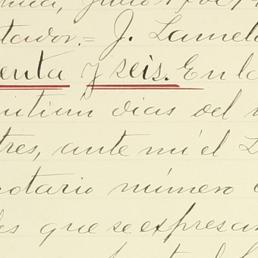 tador.= J. Lamel
enta y seis. En la
intiun dias del
tres, ante mí el L
notario número
es que se expresan